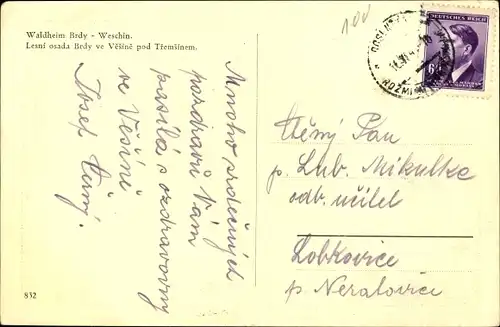 Waldheim Brdy - Weschin.
Lesní osada Brdy ve Věšíně pod Třemšínem.
100
DEUTSCHES REICH
60
Mnoho srdečných
pozdravů Vám
zasílá s ozdravovny
ve Věšíně
Josef
Ctěný Pan
p. Lub. Mikulka
odb. učitel
Lobkovice
p Neratovice
832